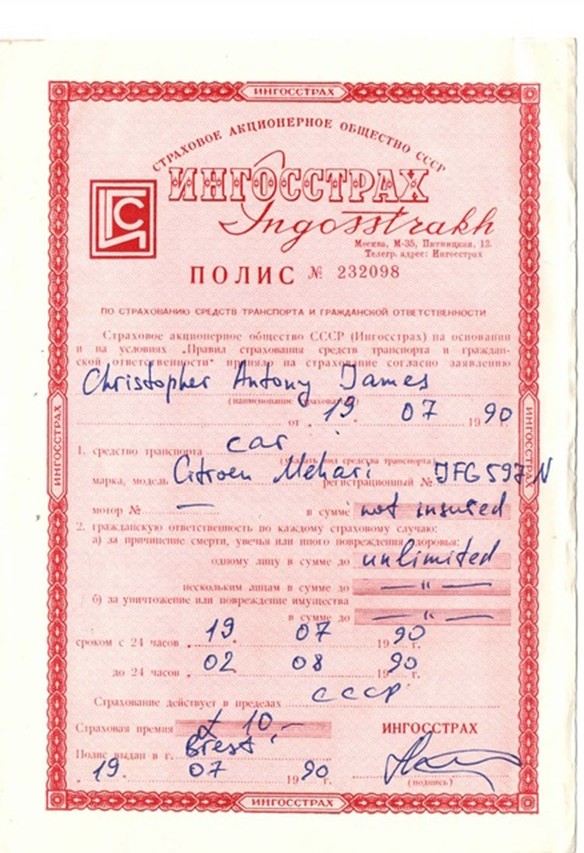 ИНГОССТРАХ
СТРАХОВОЕ АКЦИОНЕРНОЕ ОБЩЕСТВО СССР
ИНГОССТРАХ
Ingosstrakh
Москва, М-35, Пятницкая, 12.
Телегр. адрес: Ингосстрах
ПОЛИС № 232098
ПО СТРАХОВАНИЮ СРЕДСТВ ТРАНСПОРТА И ГРАЖДАНСКОЙ ОТВЕТСТВЕННОСТИ
Страховое акционерное общество СССР (Ингосстрах) на основании
и на условиях „Правил страхования средств транспорта и граждан-
ской ответственности" приняло на страхование согласно заявлению
Christopher Antony James
(наименование страхователя)
от 19 07 1990
1. средство транспорта car
(указать вид средства транспорта)
марка, модель Citroen Mehari регистрационный № JFG 597 N
мотор № — в сумме not insured
2. гражданскую ответственность по каждому страховому случаю:
а) за причинение смерти, увечья или иного повреждения здоровья:
одному лицу в сумме до unlimited
нескольким лицам в сумме до — " —
б) за уничтожение или повреждение имущества
в сумме до — " —
сроком с 24 часов 19 07 1990 г.
до 24 часов 02 08 1990 г.
Страхование действует в пределах СССР
Страховая премия £ 10,-
ИНГОССТРАХ
Полис выдан в г. Brest
19 07 1990 г.
(подпись)
ИНГОССТРАХ
ИНГОССТРАХ
ИНГОССТРАХ